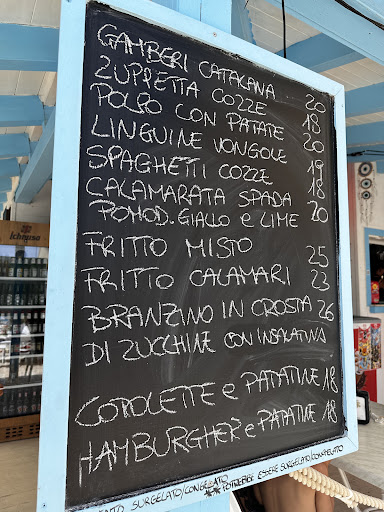 GAMBERI CATALANA 20
ZUPPETTA COZZE 18
POLPO CON PATATE 20
LINGUINE VONGOLE 19
SPAGHETTI COZZE 18
CALAMARATA SPADA
POMOD. GIALLO e LIME 20
FRITTO MISTO 25
FRITTO CALAMARI 23
BRANZINO IN CROSTA 26
DI ZUCCHINE CON INSALATINA
COTOLETTE e PATATINE 18
HAMBURGHER e PATATINE 18
SURGELATO/CONGELATO
** POTREBBE ESSERE SURGELATO/CONGELATO
Ichnusa